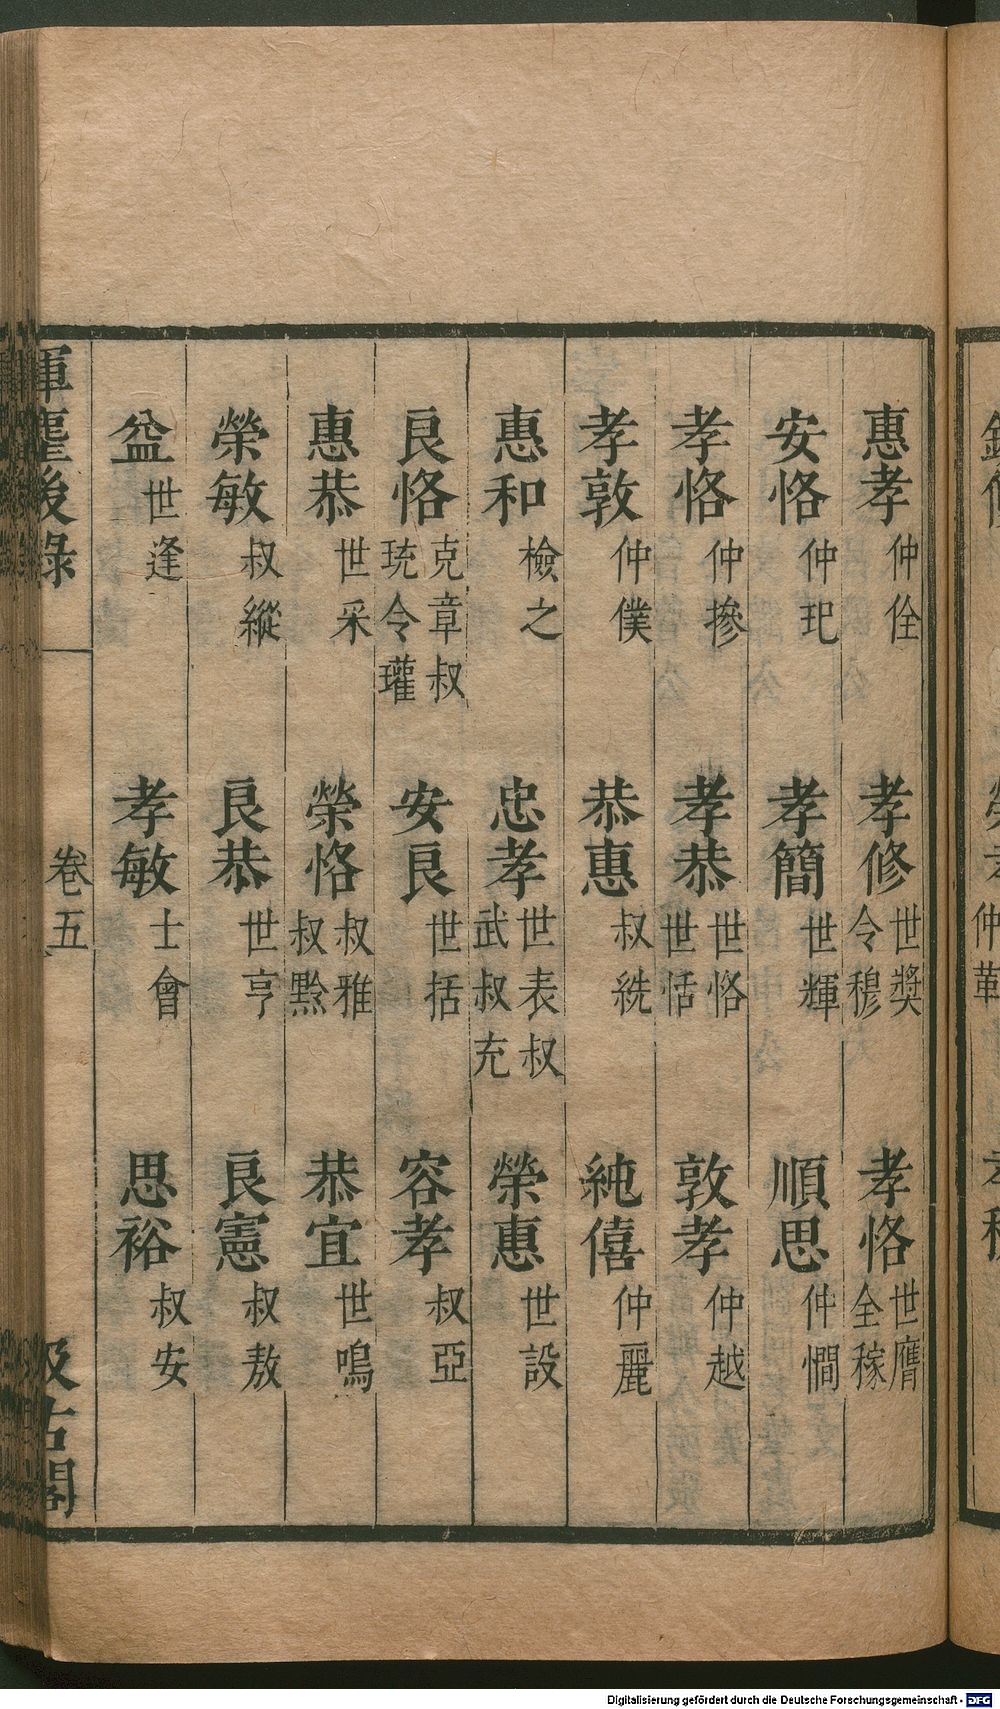 惠孝仲佺 孝修世奬令穆 孝恪世膺全稼
安恪仲玘 孝簡世輝 順思仲憪
孝恪仲摻 孝恭世恪世恬 敦孝仲越
孝敦仲僕 恭惠叔統 純僖仲麗
惠和檢之 忠孝世表叔武叔充 榮惠世設
良恪克章叔珫令瓘 安良世括 容孝叔亞
惠恭世采 榮恪叔雅叔黔 恭宜世鳴
榮敏叔縱 良恭世亨 良憲叔敖
益世逢 孝敏士會 思裕叔安
揮麈後錄 卷五 汲古閣
Digitalisierung gefördert durch die Deutsche Forschungsgemeinschaft - DFG